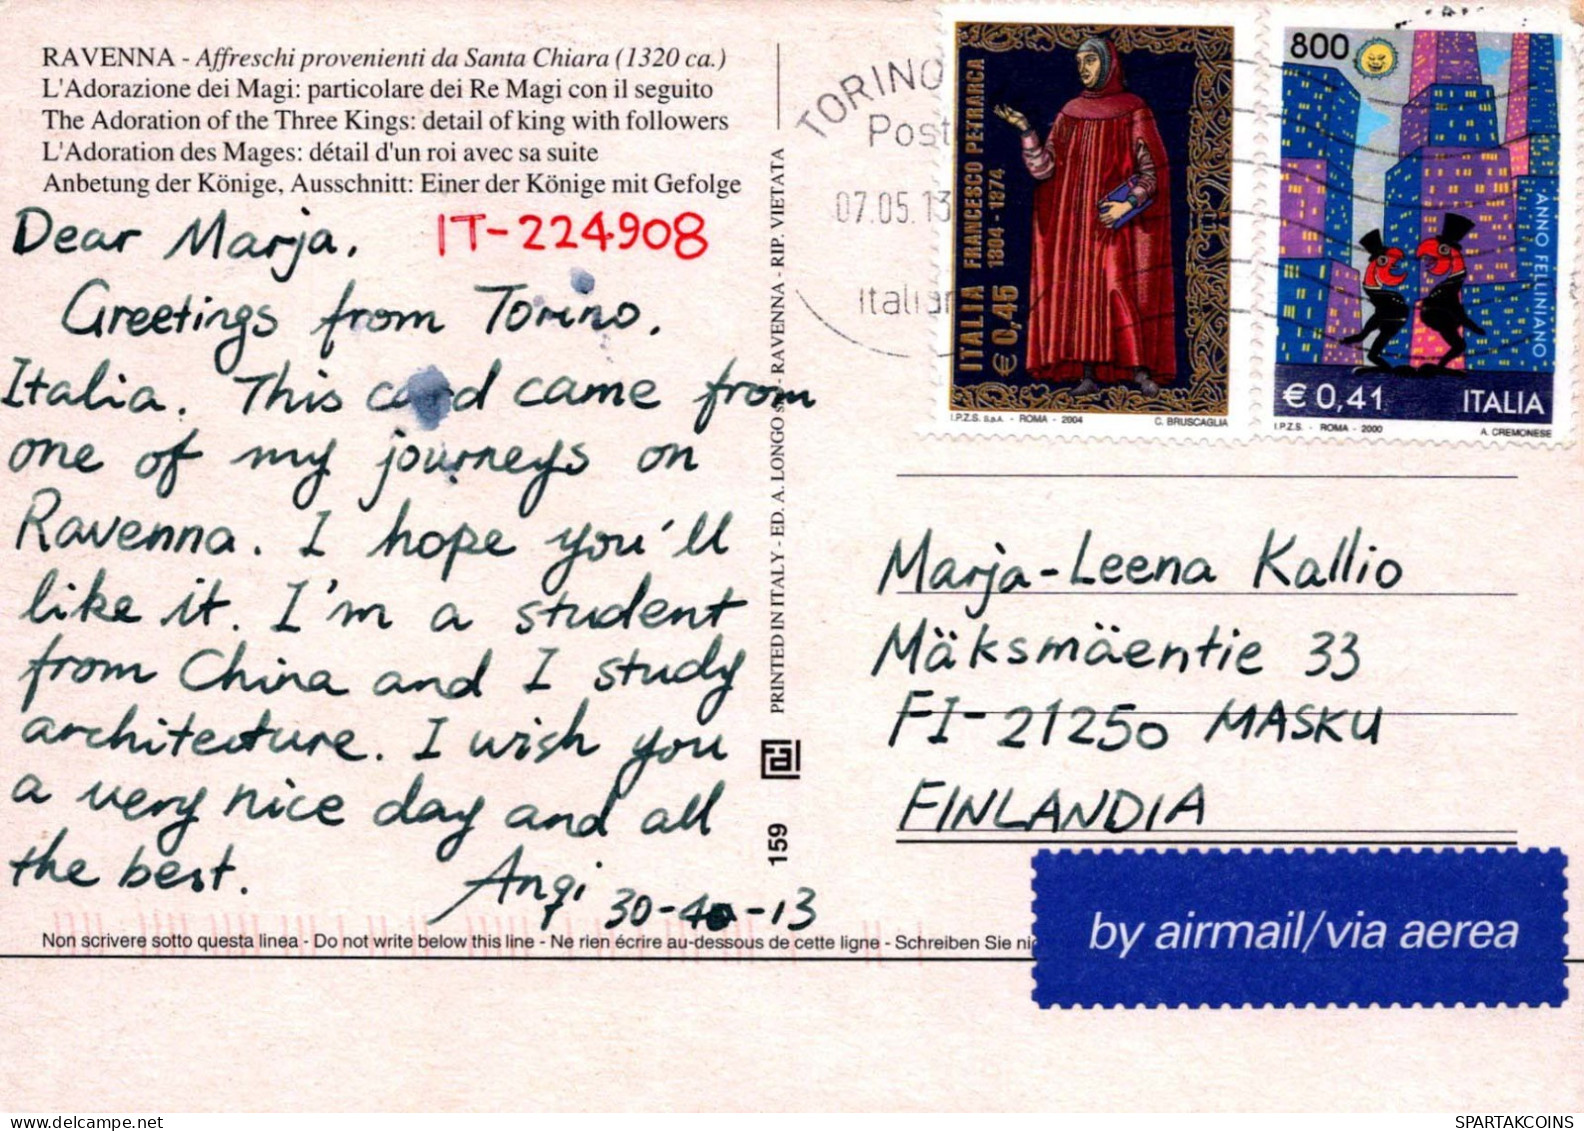 RAVENNA - Affreschi provenienti da Santa Chiara (1320 ca.)
L'Adorazione dei Magi: particolare dei Re Magi con il seguito
The Adoration of the Three Kings: detail of king with followers
L'Adoration des Mages: détail d'un roi avec sa suite
Anbetung der Könige, Ausschnitt: Einer der Könige mit Gefolge
Dear Marja, IT-224908
Greetings from Torino,
Italia. This card came from
one of my journeys on
Ravenna. I hope you'll
like it. I'm a student
from China and I study
architecture. I wish you
a very nice day and all
the best. Anqi 30-4-13
Non scrivere sotto questa linea - Do not write below this line - Ne rien écrire au-dessous de cette ligne - Schreiben Sie
PRINTED IN ITALY - ED. A. LONGO - RAVENNA - RIP. VIETATA
159
TORINO
Post
07.05.13
Italian
ITALIA FRANCESCO PETRARCA
€ 0,45 1304 - 1374
I.P.Z.S. S.p.A. - ROMA - 2004 C. BRUSCAGLIA
800
ANNO FELLINIANO
€ 0,41 ITALIA
I.P.Z.S. - ROMA - 2000 A. CREMONESE
Marja-Leena Kallio
Mäksmäentie 33
FI-21250 MASKU
FINLANDIA
by airmail/via aerea
SPARTAKCOINS